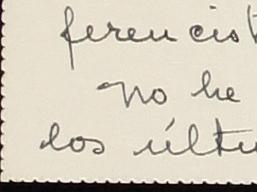 ferencist
no he
los últu